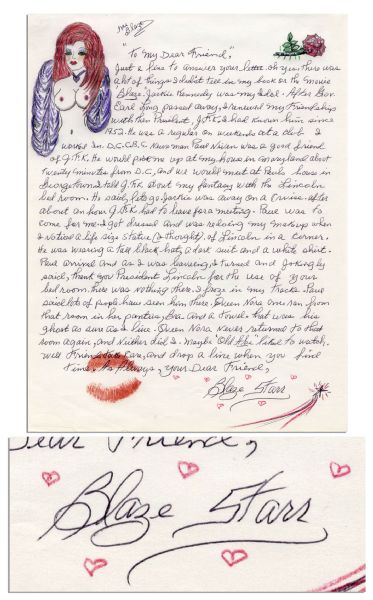 Miss
Blaze
"To My Dear Friend",
Just a line to answer your letter. oh yes, there was
a lot of things I didn't tell in my book or the movie
Blaze. Jackie Kennedy was my Idol. After Gov.
Earl Long passed away, I renewed my Friendship
with then President, J.F.K. I had known him since
1952. He was a regular on weekends at a club I
worked In D.C. C.B.C. News man Paul Niven was a good friend
of J.F.K. He would pick me up at my house in Maryland about
twenty minutes from D.C., and we would meet at Pauls house in
Georgetown. I told J.F.K. about my fantasy with the Lincoln
bed room. He said, let's go, Jackie was away on a Cruise. After
about an hour J.F.K. had to leave for a meeting. Paul was to
come for me. I got dressed and was redoing my makeup when
I noticed a life size Statue (I thought) of Lincoln in a corner.
He was wearing a tall black hat, a dark suit and a white shirt.
Paul arrived and as I was leaving, I turned and Jokingly
said, thank you President Lincoln for the use of your
bed room. There was nothing there. I froze in my tracks. Paul
said lots of people have seen him there. Queen Nora once ran from
that room in her panties, Bra and a towel. that was his
ghost as sure as I live. Queen Nora Never returned to that
room again, and Neither did I. Maybe "Old Abe" liked to watch.
Well Friend take Care, and drop a line when you find
time. As Always, your Dear Friend,
Blaze Starr
Dear Friend,
Blaze Starr